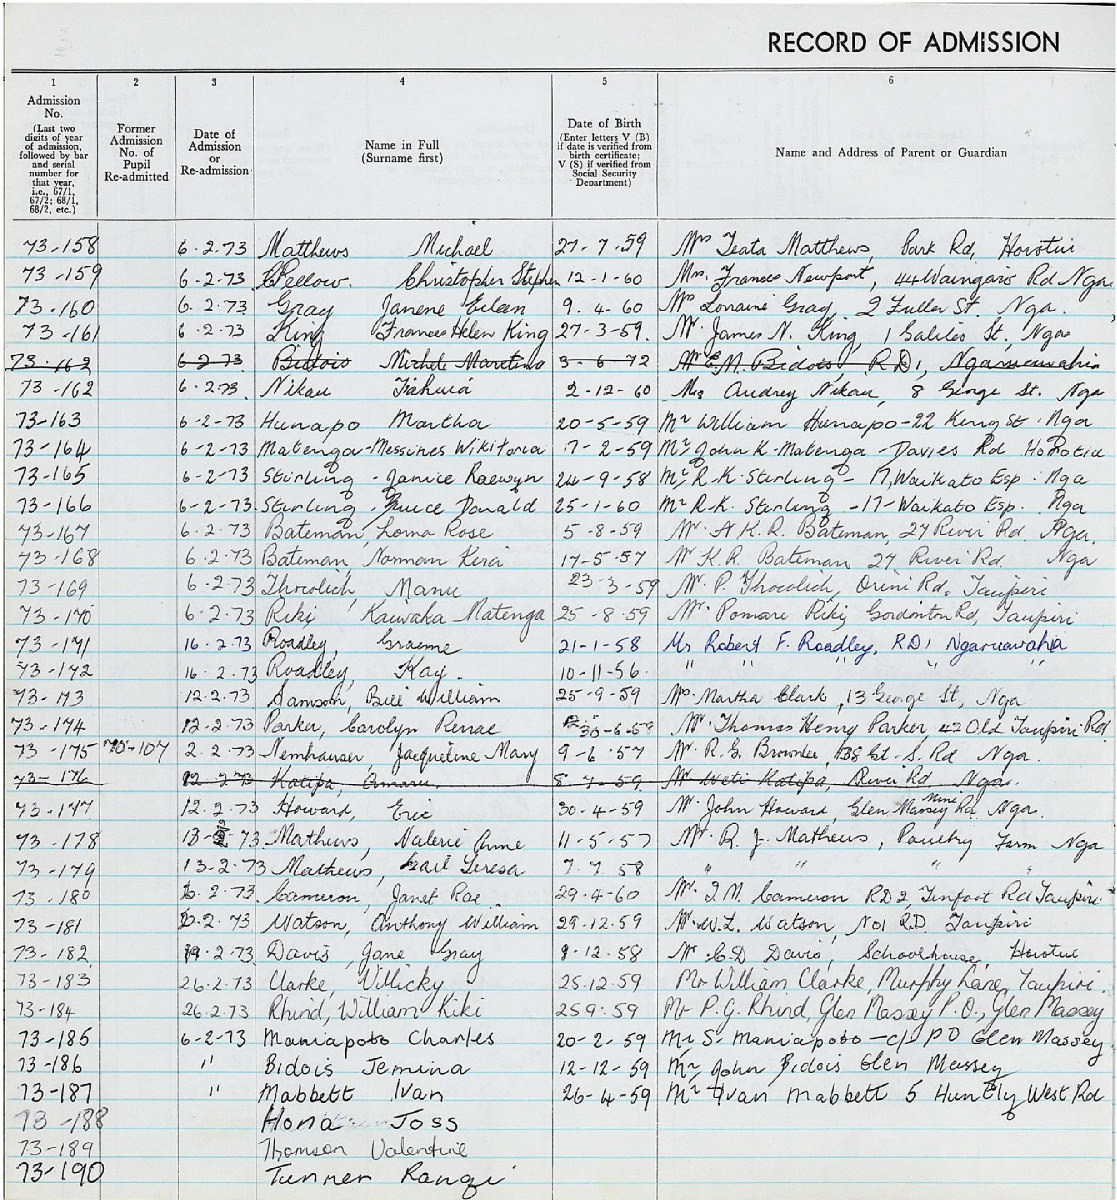 RECORD OF ADMISSION
1 2 3 4 5 6
Admission No. (Last two digits of year of admission, followed by bar and serial number for that year, i.e., 67/1, 67/2; 68/1, 68/2, etc.)
Former Admission No. of Pupil Re-admitted
Date of Admission or Re-admission
Name in Full (Surname first)
Date of Birth (Enter letters V (B) if date is verified from birth certificate; V (S) if verified from Social Security Department)
Name and Address of Parent or Guardian
73-158 6.2.73 Matthews Michael 27-7-59 Mrs Teata Matthews, Park Rd, Horotiu
73-159 6-2-73 Bellow. Christopher Stephen 12-1-60 Mrs. Frances Newport, 44 Waingaro Rd Nga.
73-160 6.2.73 Gray Janene Eileen 9.4-60 Mrs Loraine Gray, 2 Fuller St. Nga.
73-161 6.2.73 King Frances Helen King 27-3-59. Mr. James N. King, 1 Galileo St., Nga
73-162 6-2-73 Bidois Michele Martina 3-6-72 Mr E.M. Bidois, R.D.1, Ngaruawahia
73-162 6.2.73. Nikau 2-12-60 Mrs Audrey Nikau, 8 George St. Nga
73-163 6-2-73 Hunapo Martha 20-5-59 Mr William Hunapo-22 King St. Nga
73-164 6-2-73 Matenga-Messines Wikitoria 17-2-59 Mr John K-Matenga-Davies Rd Horotiu
73-165 6-2-73 Stirling-Janice Raewyn 24-9-58 Mr R.K-Stirling-17, Waikato Esp. Nga
73-166 6-2-73. Stirling-Bruce Donald 25-1-60 Mr R.K. Stirling-17-Waikato Esp. Nga
73-167 6.2.73 Bateman, Lorna Rose 5-8-59 Mr. A K.R. Bateman, 27 River Rd. Nga.
73-168 6.2-73 Bateman, Norman Kira 17-5-57 Mr K.R. Bateman 27 River Rd. Nga
73-169 6-2-73 Manu 23-3-59 Mr. P. Orini Rd, Taupiri
73-170 6.2.73 Riki Kauwaka Matenga 25-8-59 Mr. Pomare Riki, Gordonton Rd, Taupiri
73-171 16.2.73 Roadley, Graeme 21-1-58 Mr Robert F. Roadley, R.D.1 Ngaruawahia
73-172 16.2.73 Roadley, Kay. 10-11-56. " " " " "
73-173 12.2.73 Samson, Bill William 25-9-59 Mrs. Martha Clark, 13 George St, Nga
73-174 12-2-73 Parker, Carolyn 30-6-58 Mr. Thomas Henry Parker, 42 Old Taupiri Rd
73-175 70-107 2.2.73 Nemhauser, Jacqueline Mary 9-6-57 Mr. R.G. Brownlee, 138 Gt. S. Rd Nga.
73-176 12.2-73 Katipa, Amaru. 8-7-59 Mr Weti Katipa, River Rd Nga.
73-177 12.2.73 Howard, Eric 30-4-59 Mr. John Howard, Glen Massey Mine Rd. Nga.
73-178 13-2-73. Mathews, Valerie Anne 11-5-57 Mr. R.J. Mathews, Poultry Farm Nga
73-179 13.2.73 Mathews, Gail Teresa 7.7.58 " " " "
73-180 2.73. Cameron, Janet Rae 29.4-60 Mr. I.M. Cameron RD2 Tenfoot Rd Taupiri.
73-181 2.73 Watson, Anthony William 29.12.59 Mr. W.L. Watson, No1 R.D. Taupiri
73-182 19.2.73 Davis, Jane Gray 8-12.58 Mr. C.D Davis, Schoolhouse, Horotiu
73-183 26.2.73 Clarke, Villicky 25.12.59 Mr William Clarke, Murphy Lane, Taupiri.
73-184 26.2.73 Rhind, William Kiki 25.9.59 Mr P.G. Rhind, Glen Massey P.O., Glen Massey
73-185 6-2-73 Maniapoto Charles 20-2-59 Mr S. Maniapoto-c/- PO Glen Massey
73-186 " Bidois Jemina 12-12-59 Mr John Bidois Glen Massey
73-187 " Mabbett Ivan 26-4-59 Mr Ivan Mabbett 5 Huntly West Rd
73-188 Hona Joss
73-189 Thomson Valentine
73-190 Turner Rangi